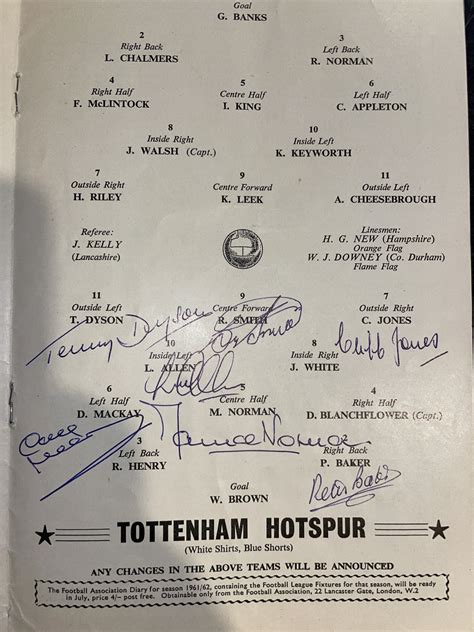 Goal
G. BANKS
2 3
Right Back Left Back
L. CHALMERS R. NORMAN
4 5 6
Right Half Centre Half Left Half
F. McLINTOCK I. KING C. APPLETON
8 10
Inside Right Inside Left
J. WALSH (Capt.) K. KEYWORTH
7 9 11
Outside Right Centre Forward Outside Left
H. RILEY K. LEEK A. CHEESEBROUGH
Referee: Linesmen:
J. KELLY H. G. NEW (Hampshire)
(Lancashire) Orange Flag
W. J. DOWNEY (Co. Durham)
Flame Flag
11 9 7
Outside Left Centre Forward Outside Right
T. DYSON R. SMITH C. JONES
Terry Dyson
Cliff Jones
10 8
Inside Left Inside Right
L. ALLEN J. WHITE
6 5 4
Left Half Centre Half Right Half
D. MACKAY M. NORMAN D. BLANCHFLOWER (Capt.)
Dave Mackay
Maurice Norman
3 2
Left Back Right Back
R. HENRY P. BAKER
Peter Baker
Goal
W. BROWN
TOTTENHAM HOTSPUR
(White Shirts, Blue Shorts)
ANY CHANGES IN THE ABOVE TEAMS WILL BE ANNOUNCED
The Football Association Diary for season 1961/62, containing the Football League Fixtures for that season, will be ready
in July, price 4/– post free. Obtainable only from the Football Association, 22 Lancaster Gate, London, W.2